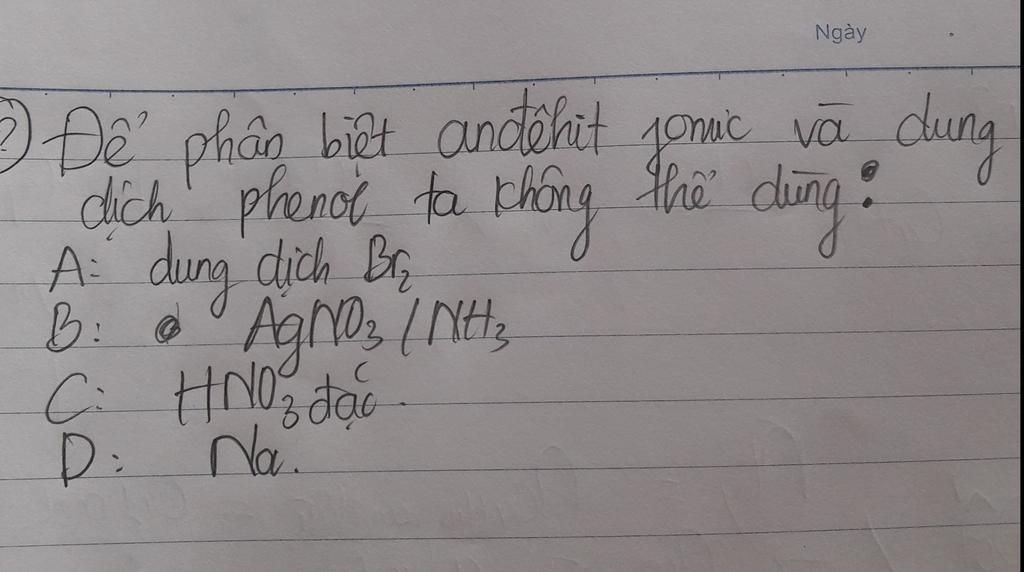 Ngày
?) Để phân biệt anđêhit fomic và dung
dịch phenol ta không thể dùng:
A: dung dịch Br₂
B: AgNO₃ / NH₃
C: HNO₃ đặc.
D: Na.